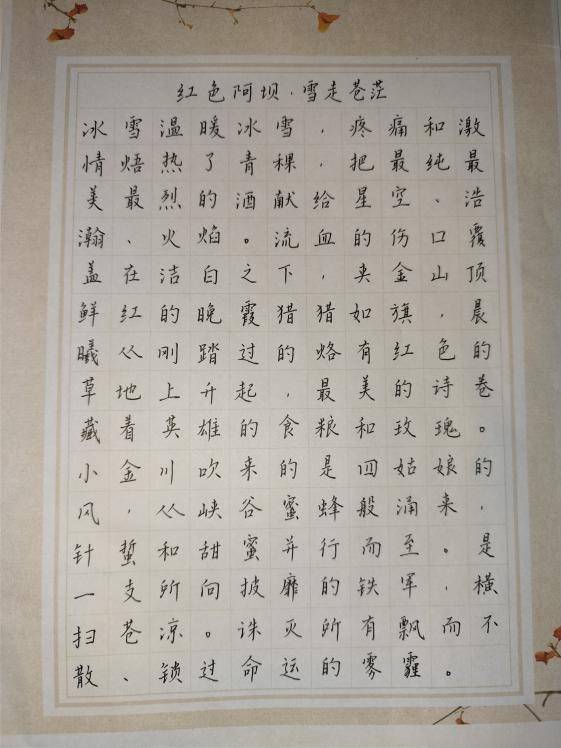 红色阿坝·雪走苍茫
冰雪温暖冰雪，疼痛和激
情焐热了青稞，把最纯最
美最烈的酒献给星空、浩
瀚、火焰。流血的伤口覆
盖在洁白之下，夹金山顶
鲜红的晚霞猎猎如旗，晨
曦从刚踏过的，烙有红色的
草地上升起，最美的诗卷
藏着英雄的食粮和玫瑰。
小金川吹来的是四姑娘的
风，从峡谷蜜蜂般涌来，
针蜇和甜蜜并行而至。是
一支所向披靡的铁军，横
扫苍凉。诛灭所有飘而不
散、锁过命运的雾霾。